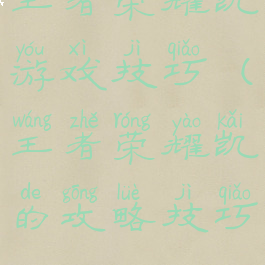 王者荣耀凯
yóu xì jì qiǎo
游戏技巧（
wáng zhě róng yào kǎi
王者荣耀凯
de gōng lüè jì qiǎo
的攻略技巧